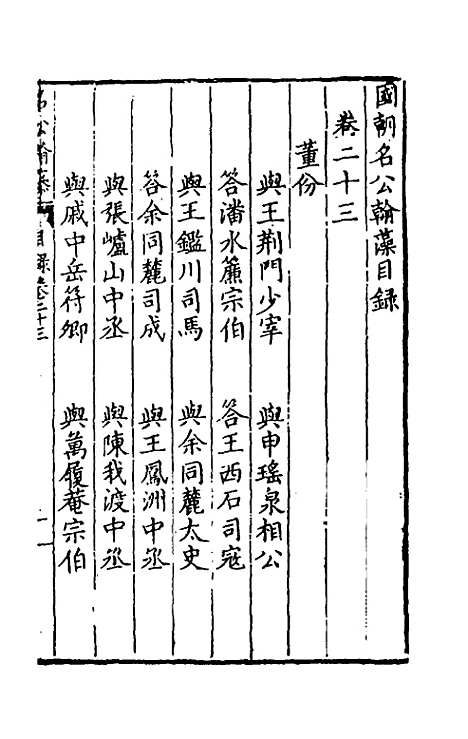 國朝名公翰藻目録
卷二十三
董份
與王荆門少宰
與申瑤泉相公
答潘水簾宗伯
答王西石司寇
與王鑑川司馬
與余同麓太史
答余同麓司成
與王鳳洲中丞
與張崌山中丞
與陳我渡中丞
與戚中岳符卿
與萬履菴宗伯
名公翰藻
目録卷二十三